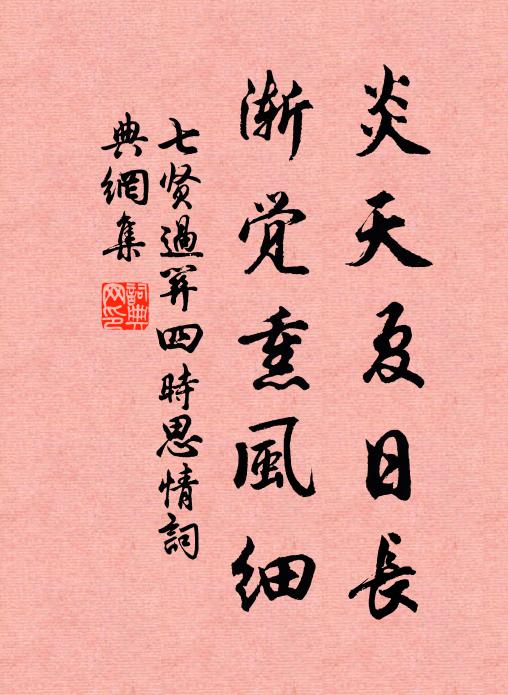 炎天夏日長
漸觉熏風細
七贤過関四時思情詞
典網集
詞典
网印